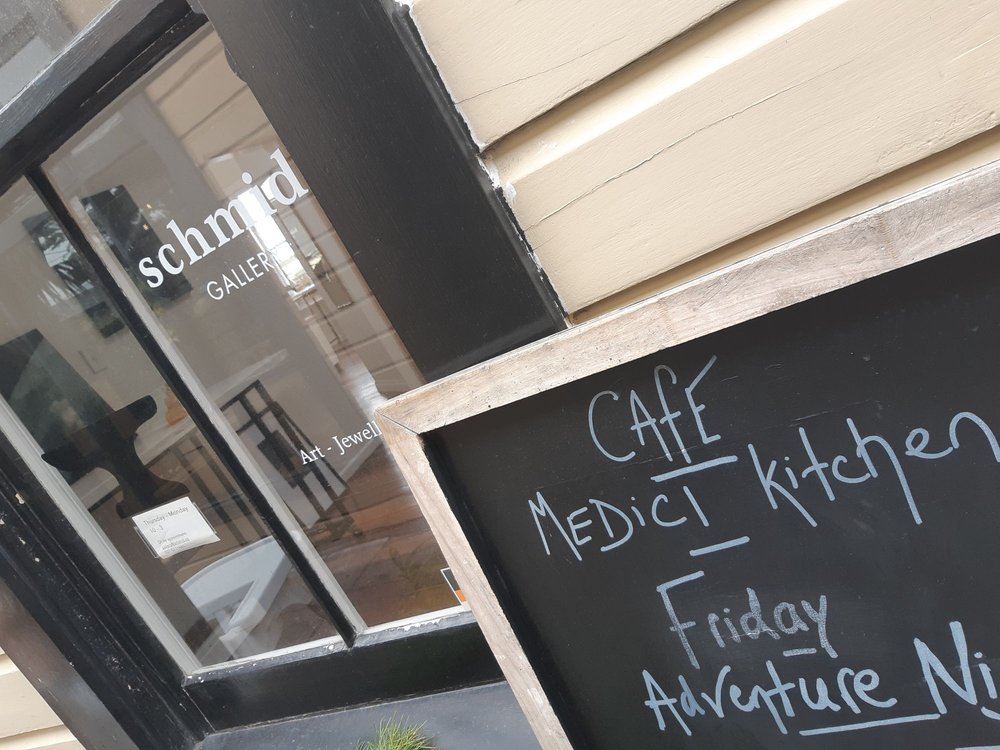 schmid
GALLER
Art - Jewell
Thursday - Monday
10 - 3
CAfE
MEDiCI kitchen
Friday
AdvENtURE Ni